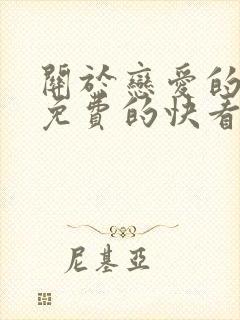 關於戀愛的
免費的快看
尼基亞